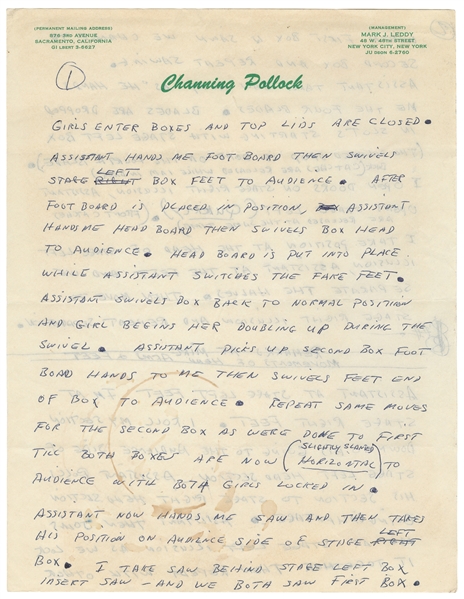 (PERMANENT MAILING ADDRESS)
676 3RD AVENUE
SACRAMENTO, CALIFORNIA
GI LBERT 3-6627
(MANAGEMENT)
MARK J. LEDDY
48 W. 48TH STREET
NEW YORK CITY, NEW YORK
JU DSON 6-2760
1
Channing Pollock
GIRLS ENTER BOXES AND TOP LIDS ARE CLOSED.
ASSISTANT HANDS ME FOOT BOARD THEN SWIVELS
STAGE RIGHT LEFT BOX FEET TO AUDIENCE. AFTER
FOOT BOARD IS PLACED IN POSITION, ASSISTANT
HANDS ME HEAD BOARD THEN SWIVELS BOX HEAD
TO AUDIENCE. HEAD BOARD IS PUT INTO PLACE
WHILE ASSISTANT SWITCHES THE FAKE FEET.
ASSISTANT SWIVELS BOX BACK TO NORMAL POSITION
AND GIRL BEGINS HER DOUBLING UP DURING THE
SWIVEL. ASSISTANT PICKS UP SECOND BOX FOOT
BOAD HANDS TO ME THEN SWIVELS FEET END
OF BOX TO AUDIENCE. REPEAT SAME MOVES
FOR THE SECOND BOX AS WERE DONE TO FIRST
TILL BOTH BOXES ARE NOW (SLIGHTLY SLANED HORIZONTAL) TO
AUDIENCE WITH BOTH GIRLS LOCKED IN.
ASSISTANT NOW HANDS ME SAW AND THEN TAKES
HIS POSITION ON AUDIENCE SIDE OF STAGE RIGHT LEFT
BOX. I TAKE SAW BEHIND STAGE LEFT BOX
INSERT SAW - AND WE BOTH SAW FIRST BOX.